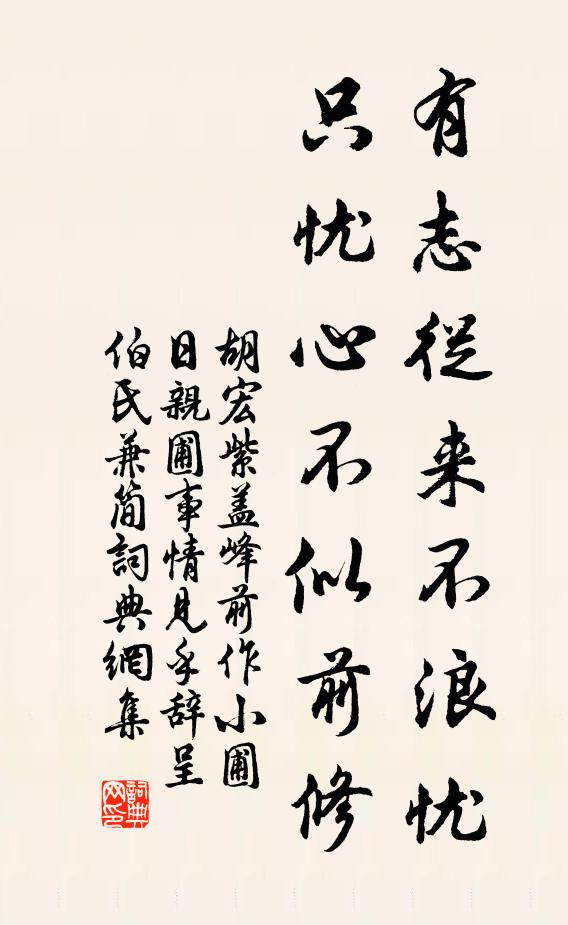 有志從来不浪忧
只忧心不似前修
胡宏紫盖峰前作小圃
日親圃事情見乎辞呈
伯氏兼简詞典網集
詞典网印